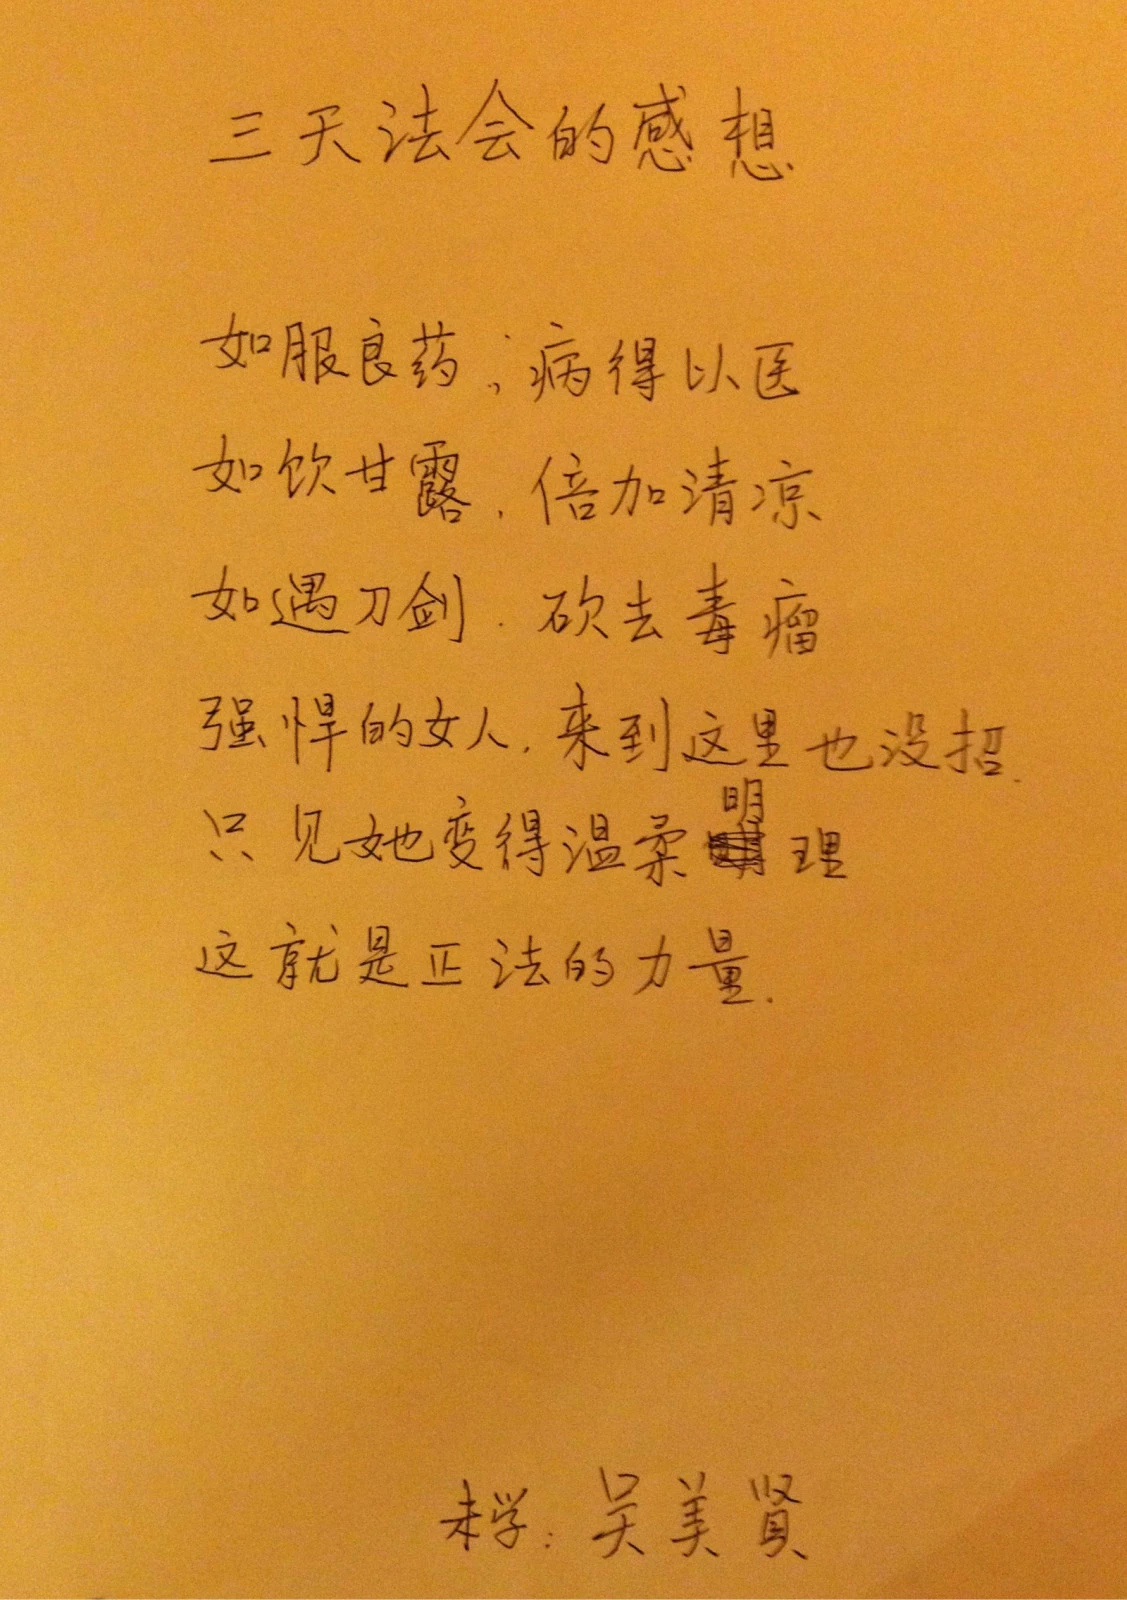 三天法会的感想
如服良药；病得以医
如饮甘露，倍加清凉
如遇刀剑．砍去毒瘤
强悍的女人，来到这里也没招．
只见她变得温柔明理
这就是正法的力量．
末学：吴美贤